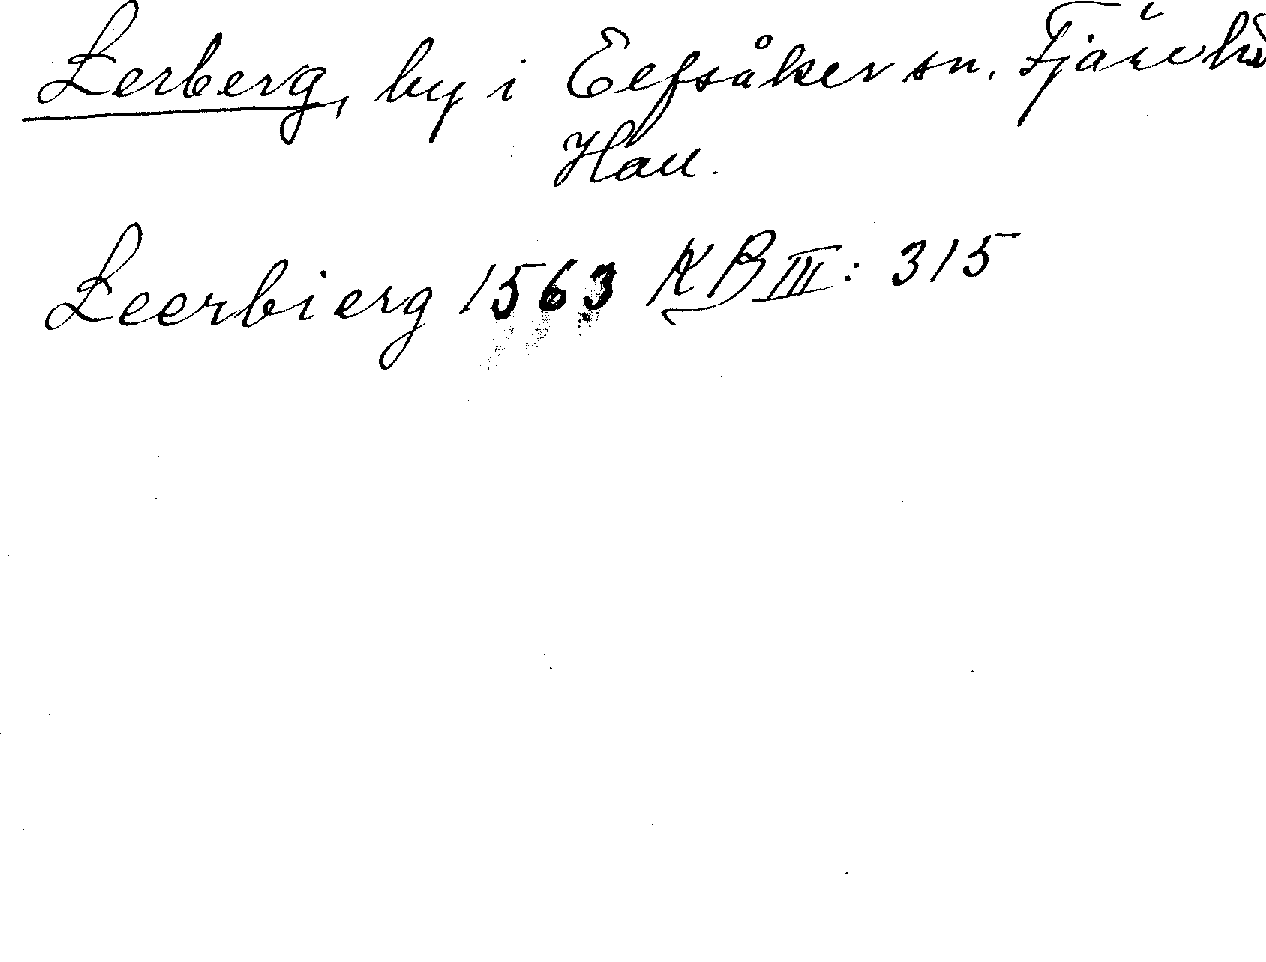 Lerberg, by i Eefsåker sn. Fjäre hd
Hall.
Leerbierg 1563 KB III: 315